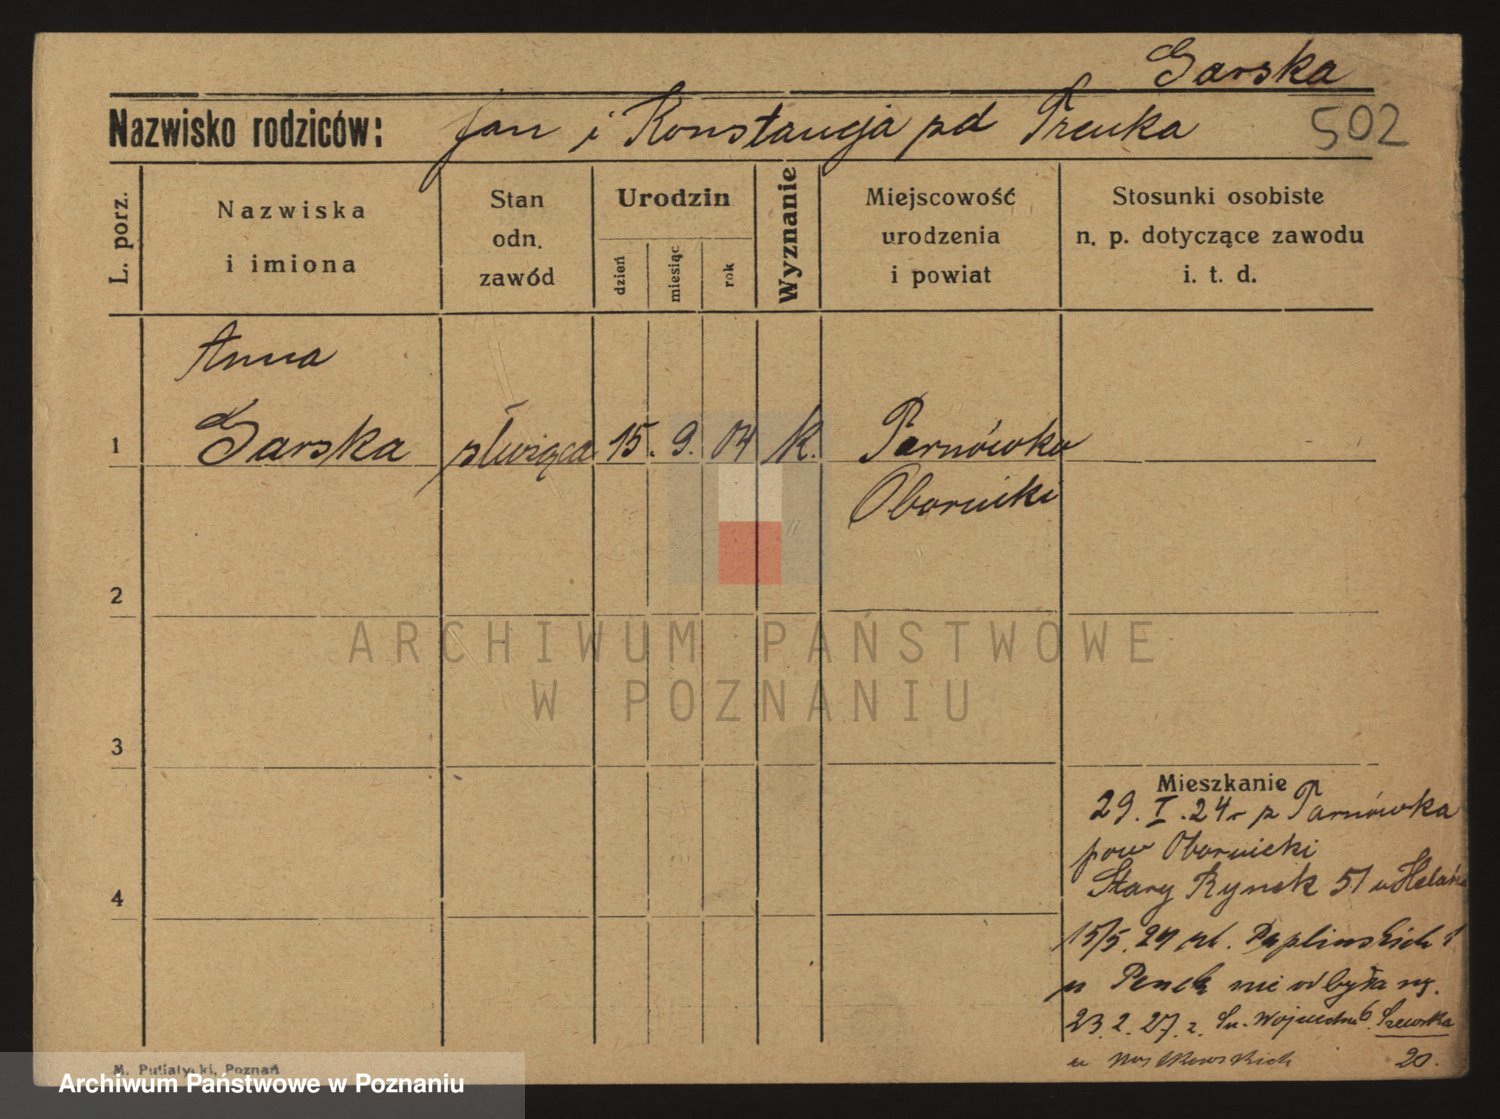 Garska
Nazwisko rodziców: Jan i Konstancja pd Trenka 502
L. porz.
Nazwiska
i imiona
Stan
odn.
zawód
Urodzin
dzień
miesiąc
rok
Wyznanie
Miejscowość
urodzenia
i powiat
Stosunki osobiste
n. p. dotyczące zawodu
i. t. d.
Anna
1 Garska służąca 15. 9. 04 k. Parnówko
Oborniki
2
ARCHIWUM PAŃSTWOWE
W POZNANIU
3
Mieszkanie
29. I. 24 r z Parnówka
pow Obornicki
4 Stary Rynek 51 u
15/5. 24
nie odbyła
23. 2. 27. Św. Wojciech 6. Szewska
u 20.
M. Putiatycki, Poznań
Archiwum Państwowe w Poznaniu